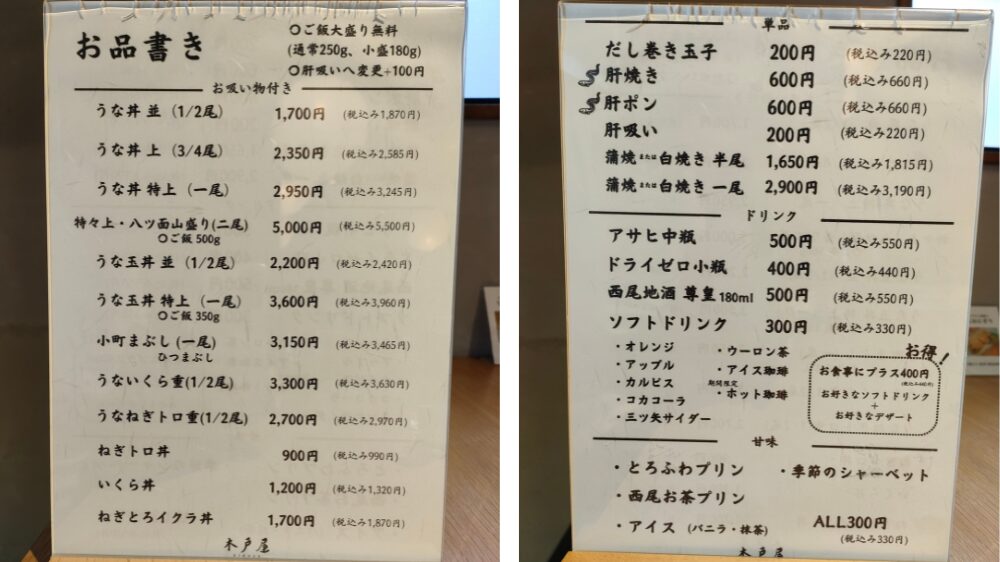 お品書き
○ご飯大盛り無料
(通常250g、小盛180g)
○肝吸いへ変更+100円
お吸い物付き
うな丼 並 (1/2尾) 1,700円 (税込み1,870円)
うな丼 上 (3/4尾) 2,350円 (税込み2,585円)
うな丼 特上 (一尾) 2,950円 (税込み3,245円)
特々上・八ツ面山盛り(二尾) 5,000円 (税込み5,500円)
○ご飯 500g
うな玉丼 並 (1/2尾) 2,200円 (税込み2,420円)
うな玉丼 特上 (一尾) 3,600円 (税込み3,960円)
○ご飯 350g
小町まぶし (一尾) 3,150円 (税込み3,465円)
ひつまぶし
うないくら重(1/2尾) 3,300円 (税込み3,630円)
うなねぎトロ重(1/2尾) 2,700円 (税込み2,970円)
ねぎトロ丼 900円 (税込み990円)
いくら丼 1,200円 (税込み1,320円)
ねぎとろイクラ丼 1,700円 (税込み1,870円)
木戸屋
単品
だし巻き玉子 200円 (税込み220円)
肝焼き 600円 (税込み660円)
肝ポン 600円 (税込み660円)
肝吸い 200円 (税込み220円)
蒲焼または白焼き 半尾 1,650円 (税込み1,815円)
蒲焼または白焼き 一尾 2,900円 (税込み3,190円)
ドリンク
アサヒ中瓶 500円 (税込み550円)
ドライゼロ小瓶 400円 (税込み440円)
西尾地酒 尊皇 180ml 500円 (税込み550円)
ソフトドリンク 300円 (税込み330円)
・オレンジ
・アップル
・カルピス
・コカコーラ
・三ツ矢サイダー
・ウーロン茶
・アイス珈琲
期間限定
・ホット珈琲
お得!
お食事にプラス400円
(税込み440円)
お好きなソフトドリンク
+
お好きなデザート
甘味
・とろふわプリン ・季節のシャーベット
・西尾お茶プリン
・アイス (バニラ・抹茶) ALL300円
(税込み330円)
木戸屋